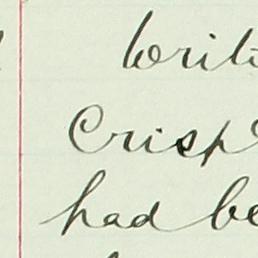 writ
Crisp
had be